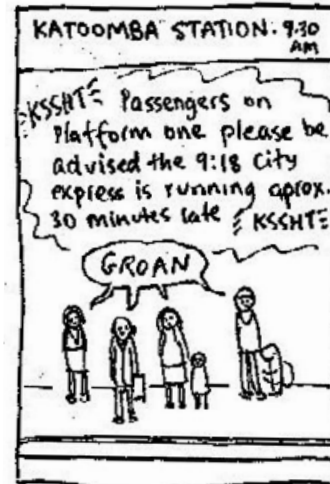 KATOOMBA STATION. 9.30
AM
KSSHT Passengers on
Platform one please be
advised the 9:18 City
express is running aprox.
30 minutes late KSSHT
GROAN